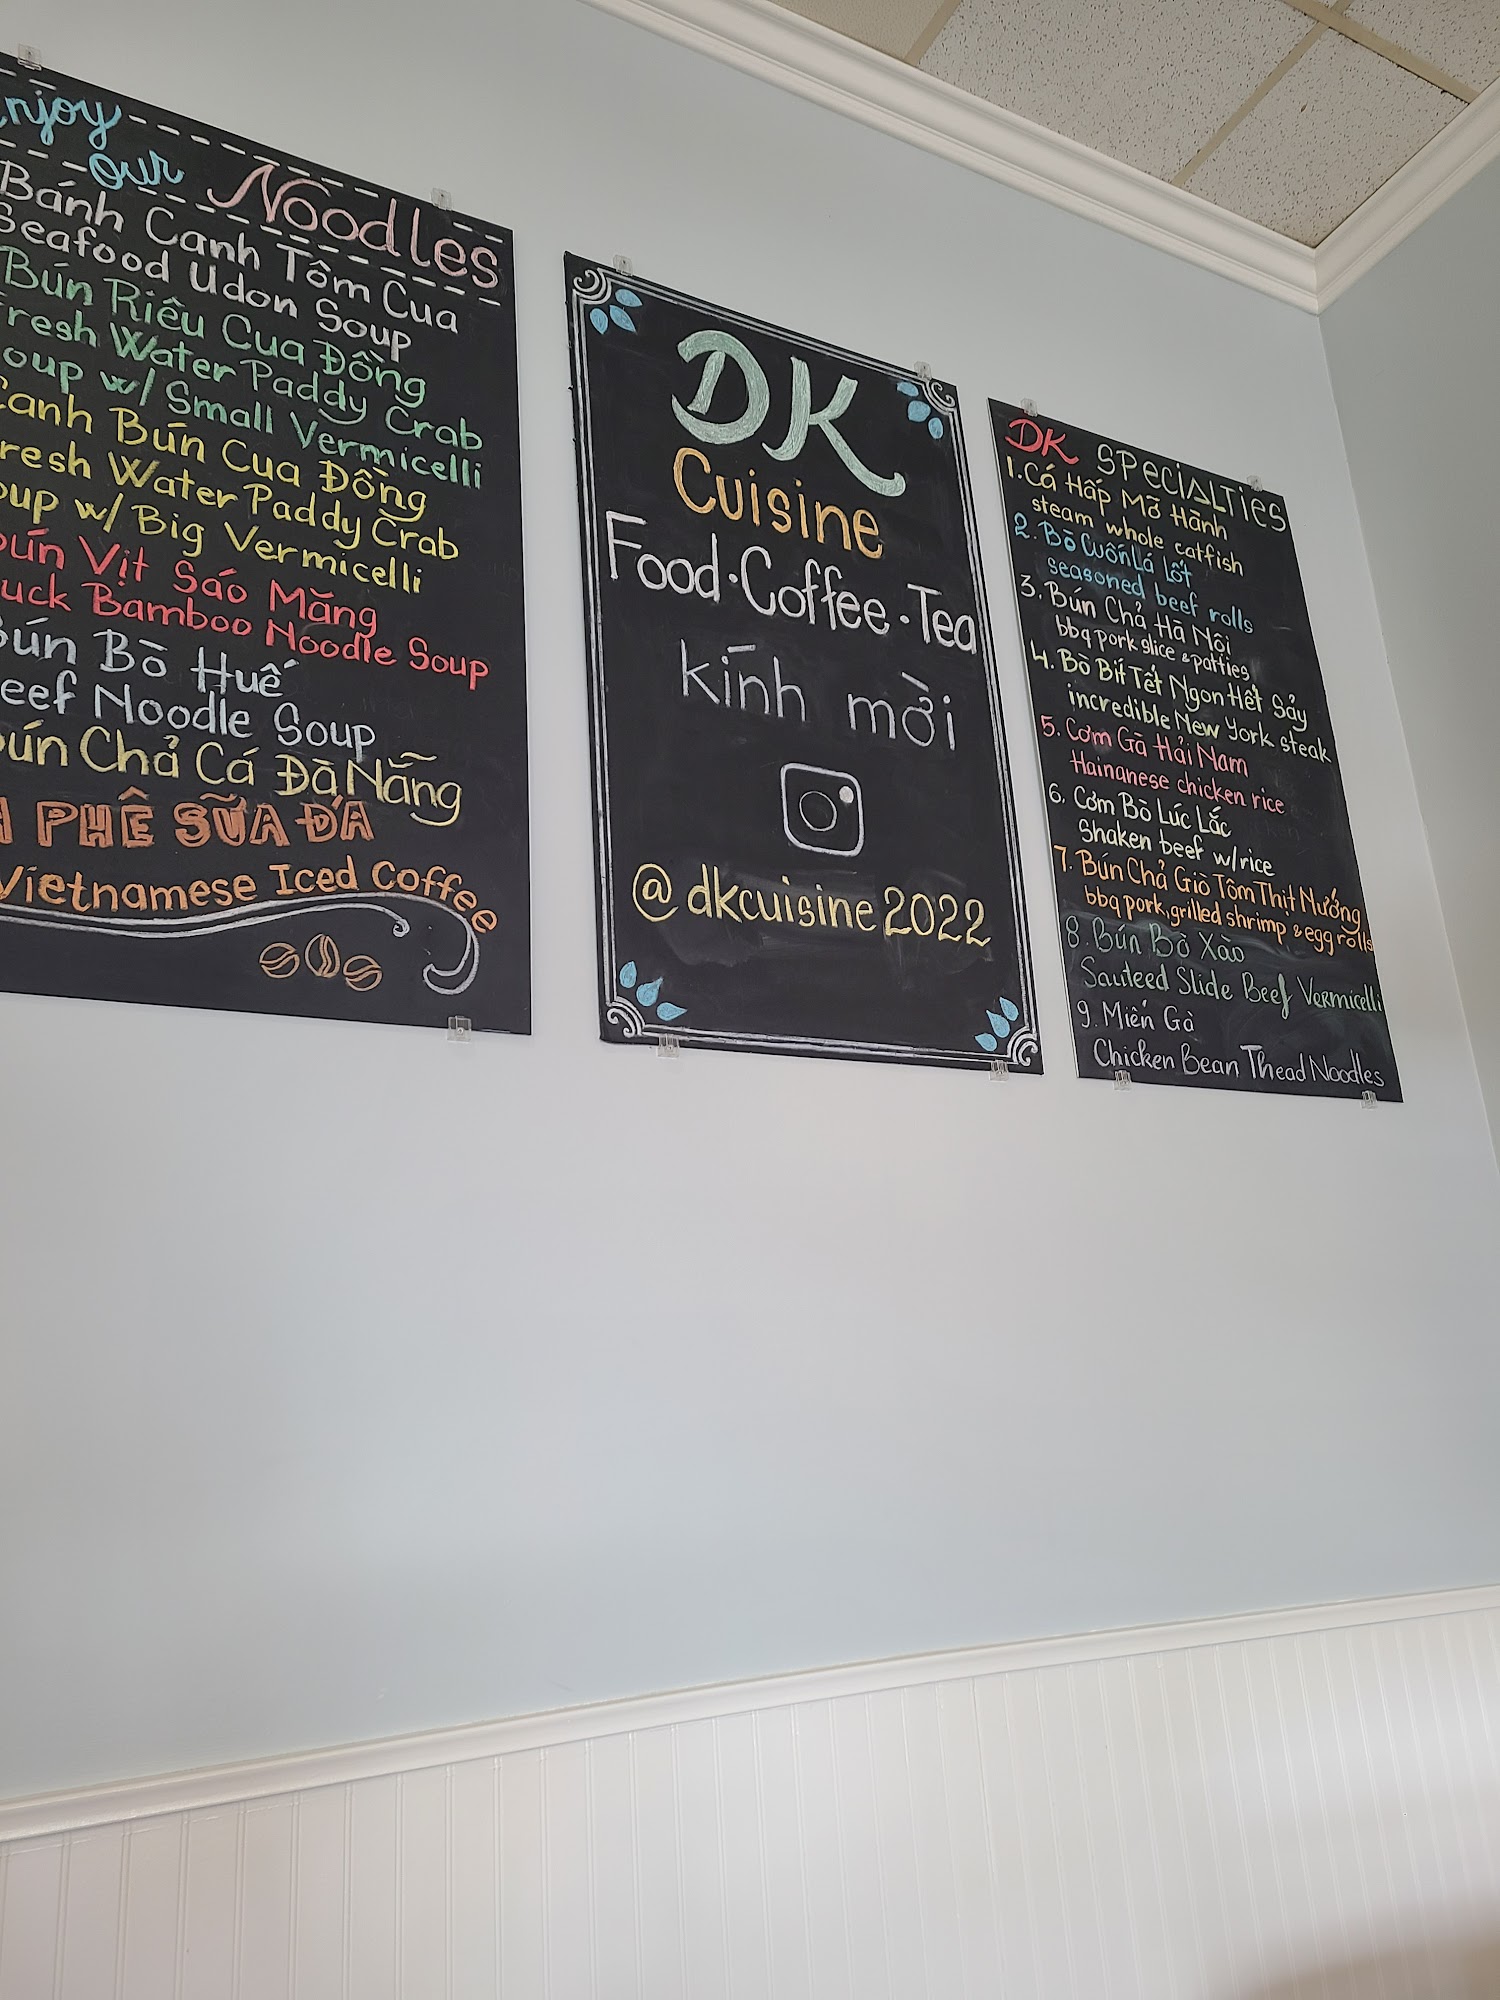 Enjoy
our Noodles
Bánh Canh Tôm Cua
Seafood Udon Soup
Bún Riêu Cua Đồng
Fresh Water Paddy Crab
Soup w/ Small Vermicelli
Canh Bún Cua Đồng
Fresh Water Paddy Crab
Soup w/ Big Vermicelli
Bún Vịt Sáo Măng
Duck Bamboo Noodle Soup
Bún Bò Huế
Beef Noodle Soup
Bún Chả Cá Đà Nẵng
PHÊ SỮA ĐÁ
Vietnamese Iced Coffee
DK
Cuisine
Food·Coffee·Tea
kính mời
@dkcuisine2022
DK SPECIALTIES
1. Cá Hấp Mỡ Hành
steam whole catfish
2. Bò Cuốn Lá Lốt
seasoned beef rolls
3. Bún Chả Hà Nội
bbq pork slice & patties
4. Bò Bít Tết Ngon Hết Sảy
incredible New York steak
5. Cơm Gà Hải Nam
Hainanese chicken rice
6. Cơm Bò Lúc Lắc
Shaken beef w/rice
7. Bún Chả Giò Tôm Thịt Nướng
bbq pork, grilled shrimp & egg rolls
8. Bún Bò Xào
Sauteed Slide Beef Vermicelli
9. Miến Gà
Chicken Bean Thead Noodles